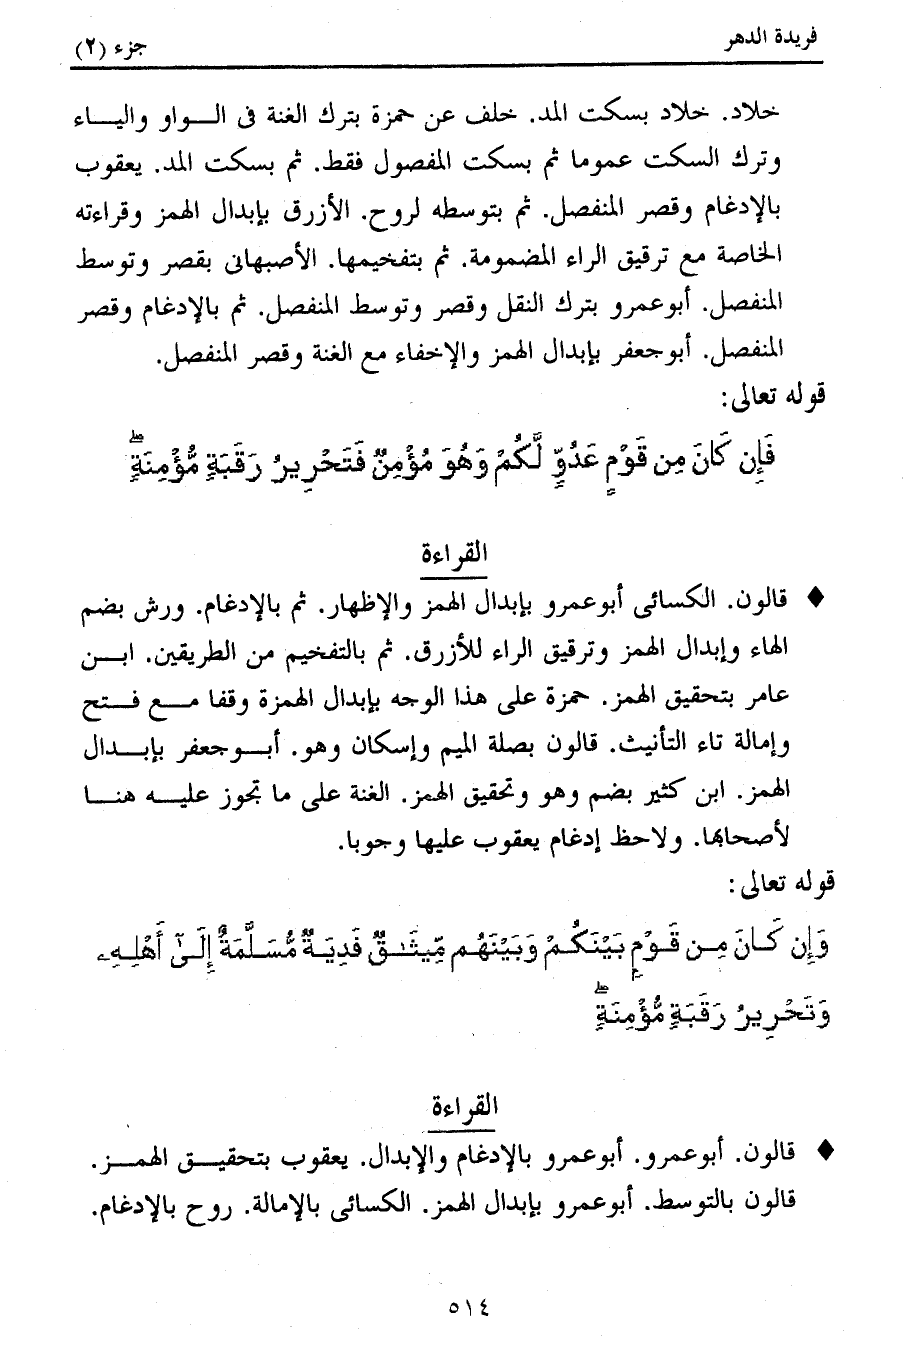 فريدة الدهر
جزء (٢)
خلاد. خلاد بسكت المد. خلف عن حمزة بترك الغنة فى الـواو واليـاء
وترك السكت عموما ثم بسكت المفصول فقط. ثم بسكت المد. يعقوب
بالإدغام وقصر المنفصل. ثم بتوسطه لروح. الأزرق بإبدال الهمز وقراءته
الخاصة مع ترقيق الراء المضمومة. ثم بتفخيمها. الأصبهانى بقصر وتوسط
المنفصل. أبوعمرو بترك النقل وقصر وتوسط المنفصل. ثم بالإدغام وقصر
المنفصل. أبوجعفر بإبدال الهمز والإخفاء مع الغنة وقصر المنفصل.
قوله تعالى:
فَإِن كَانَ مِن قَوْمٍ عَدُوٍّ لَّكُمْ وَهُوَ مُؤْمِنٌ فَتَحْرِيرُ رَقَبَةٍ مُّؤْمِنَةٍۖ
القراءة
♦ قالون. الكسائى أبوعمرو بإبدال الهمز والإظهار. ثم بالإدغام. ورش بضم
الهاء وإبدال الهمز وترقيق الراء للأزرق. ثم بالتفخيم من الطريقين. ابـن
عامر بتحقيق الهمز. حمزة على هذا الوجه بإبدال الهمزة وقفا مـع فـتح
وإمالة تاء التأنيث. قالون بصلة الميم وإسكان وهو. أبـوجعفر بإبـدال
الهمز. ابن كثير بضم وهو وتحقيق الهمز. الغنة على ما تجوز عليـه هنـا
لأصحابها. ولاحظ إدغام يعقوب عليها وجوبا.
قوله تعالى:
وَإِن كَانَ مِن قَوْمٍ بَيْنَكُمْ وَبَيْنَهُم مِّيثَـٰقٌ فَدِيَةٌ مُّسَلَّمَةٌ إِلَىٰٓ أَهْلِهِۦ
وَتَحْرِيرُ رَقَبَةٍ مُّؤْمِنَةٍۖ
القراءة
♦ قالون. أبوعمرو. أبوعمرو بالإدغام والإبدال. يعقوب بتحقيـق الهمـز.
قالون بالتوسط. أبوعمرو بإبدال الهمز. الكسائى بالإمالة. روح بالإدغام.
٥١٤